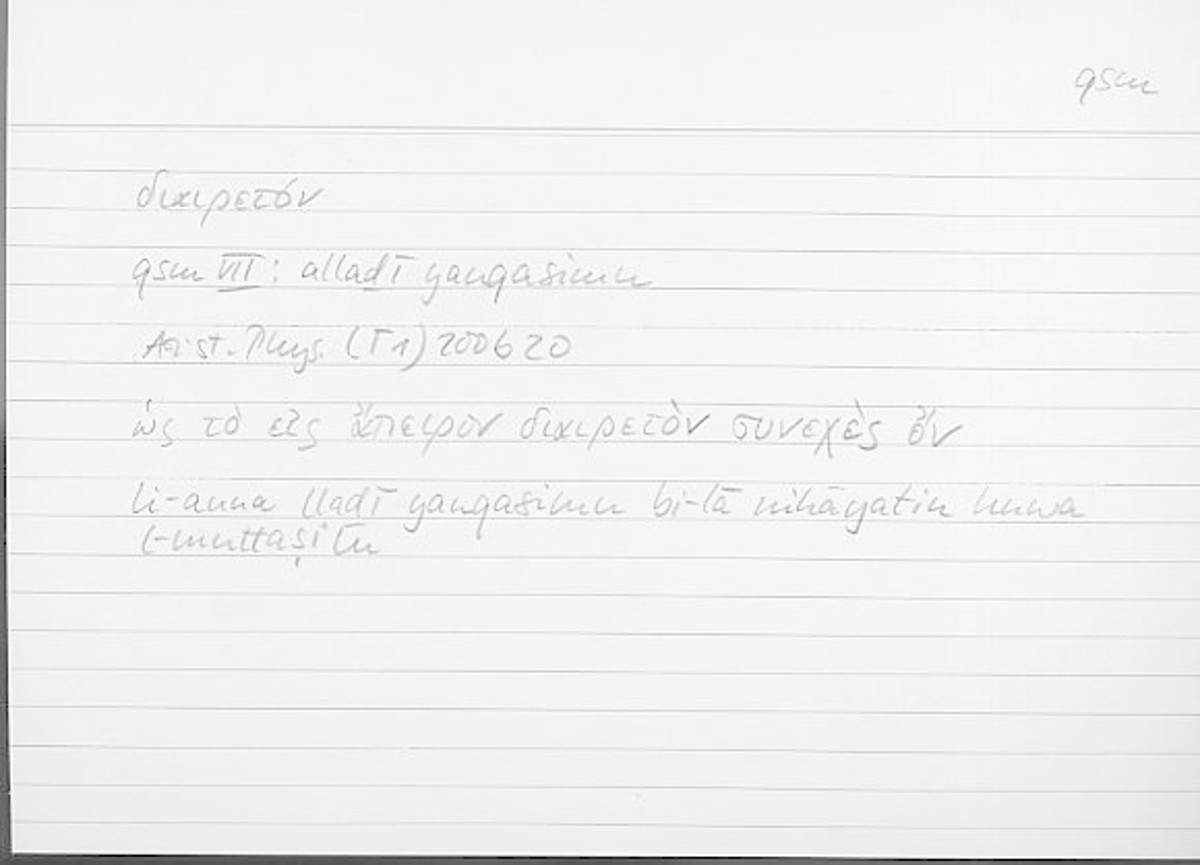 qsm
διαιρετόν
qsm VII: alladī yanqasimu
Arist. Phys. (Γ1) 200b20
ὡς τὸ εἰς ἄπειρον διαιρετὸν συνεχὲς ὄν
li-anna lladī yanqasimu bi-lā nihāyatin huwa
l-muttaṣilu